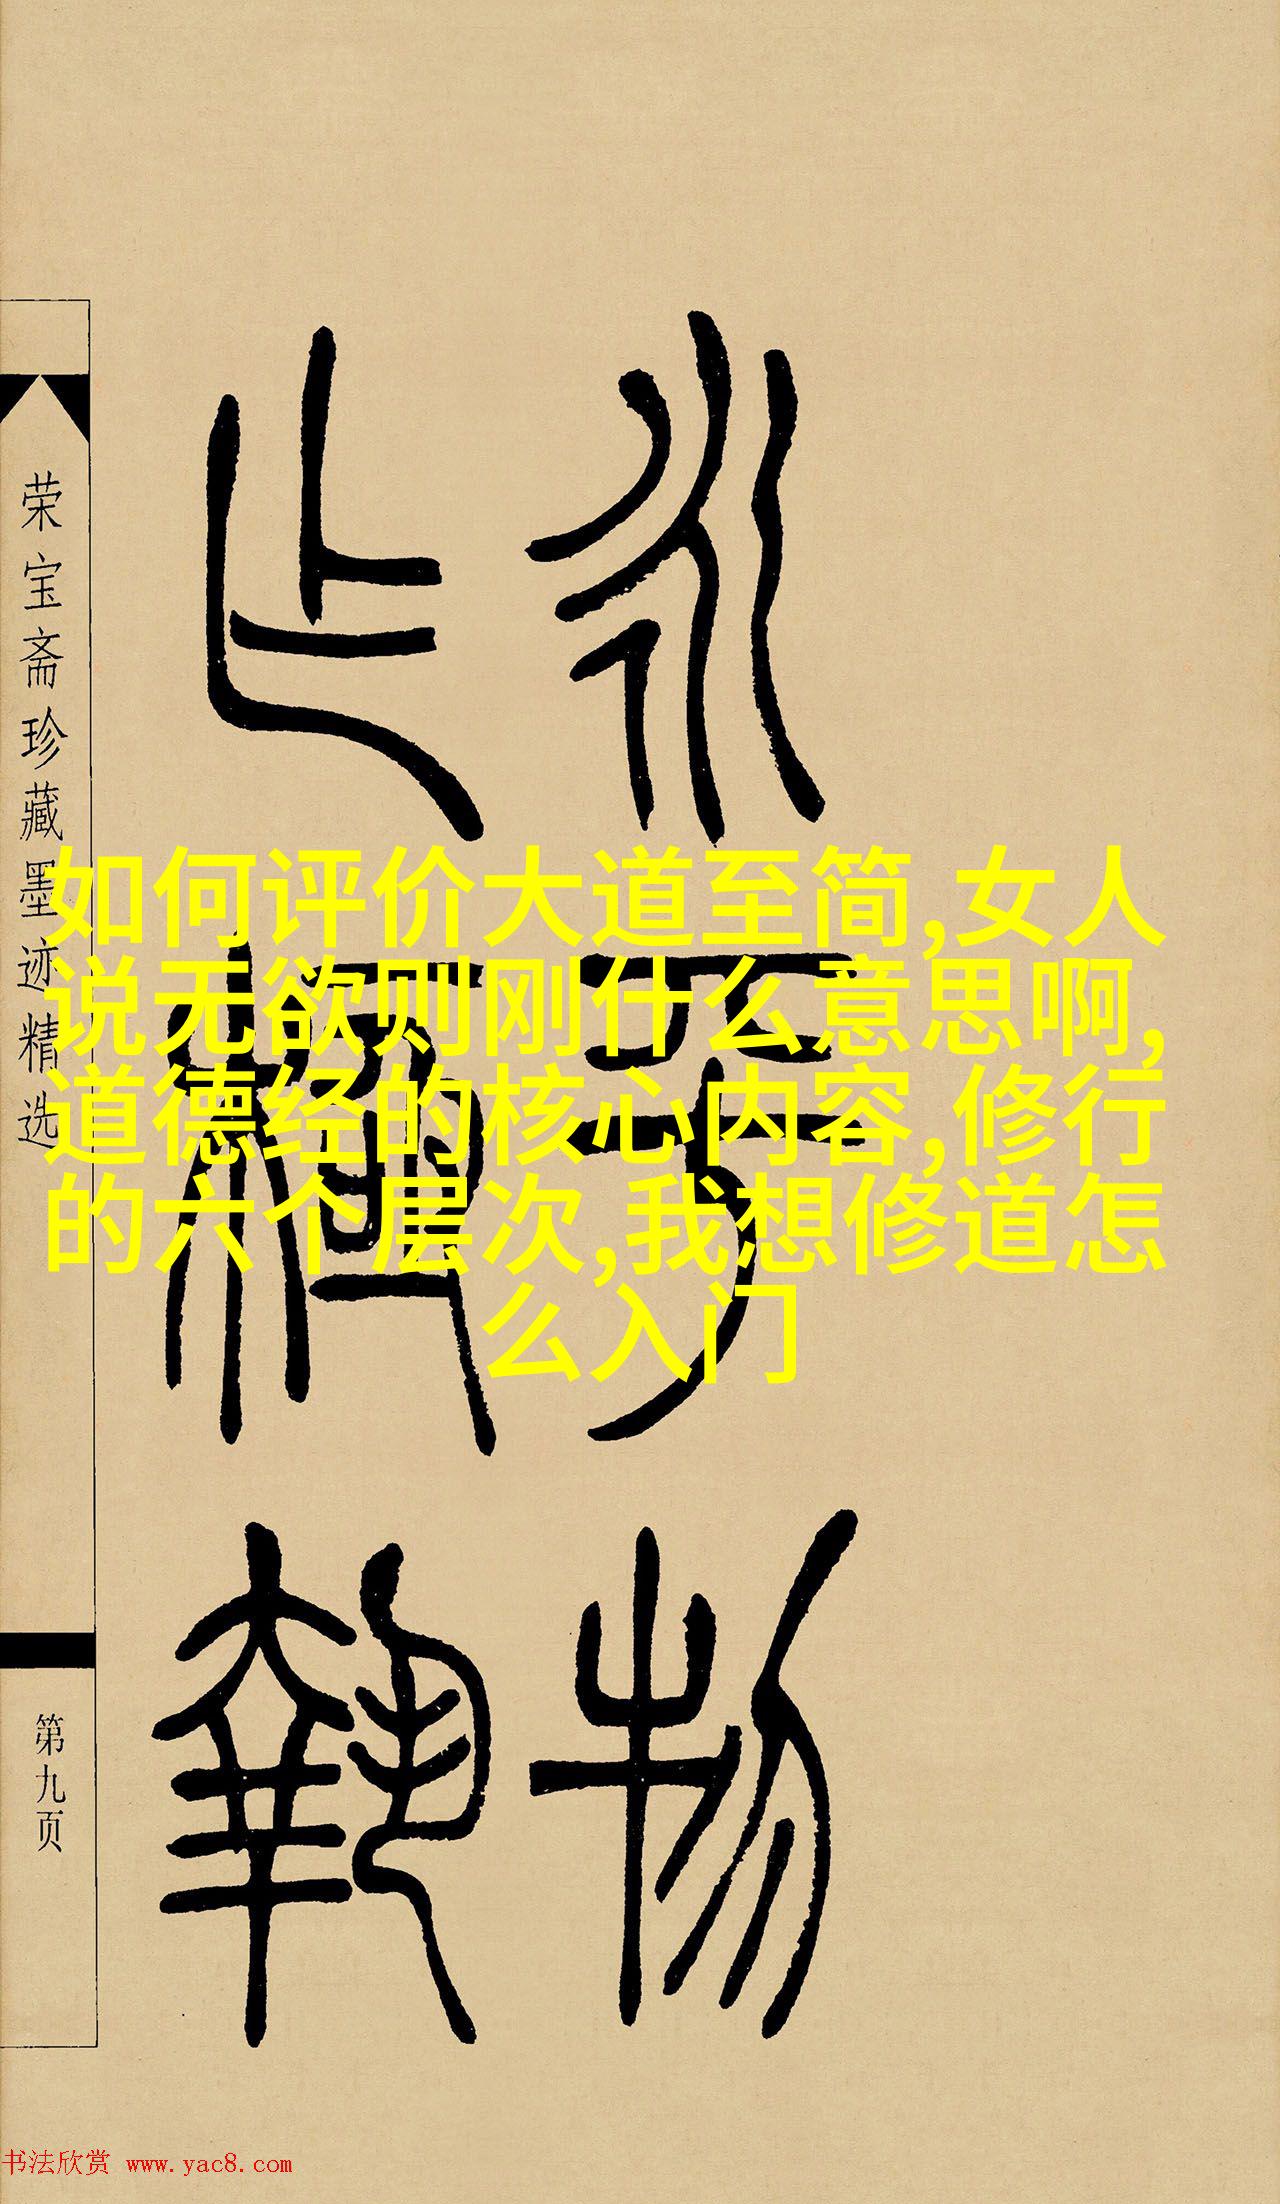 永于物
極執
荣宝斋珍藏墨迹精选
第九页
如何评价大道至简,女人
说无欲则刚什么意思啊,
道德经的核心内容,修行
的六个层次,我想修道怎
么入门
书法欣赏 www.yac8.com